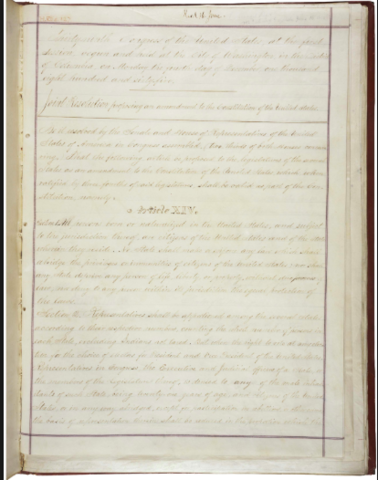 Thirty-ninth Congress of the United States, at the first
session, begun and held at the City of Washington, in the District
of Columbia, on Monday the fourth day of December, one thousand
eight hundred and sixty-five.
Joint Resolution proposing an amendment to the Constitution of the United States.
Be it resolved by the Senate and House of Representatives of the United
States of America in Congress assembled, two thirds of both Houses
That the following article be proposed to the legislatures of the several
States as an amendment to the Constitution of the United States, which, when
ratified by three fourths of said legislatures, shall be valid as part of the
namely:
Article XIV.
Section 1. All persons born or naturalized in the United States, and subject
to the jurisdiction thereof, are citizens of the United States and of the State
wherein they reside. No State shall make or enforce any law which shall
abridge the privileges or immunities of citizens of the United States; nor shall
any State deprive any person of life, liberty, or property, without due process
of law, nor deny to any person within its jurisdiction the equal protection of
the laws.
Section 2. Representatives shall be apportioned among the several States
according to their respective numbers, counting the whole number of persons in
each State, excluding Indians not taxed. But when the right to vote at any election
for the choice of electors for President and Vice President of the United States,
Representatives in Congress, the Executive and Judicial officers of a State, or
the members of the Legislature thereof, is denied to any of the male inhabi-
tants of such State, being twenty-one years of age, and citizens of the United
States, or in any way abridged, except for participation in rebellion, or other
the basis of representation therein shall be reduced in the proportion which the